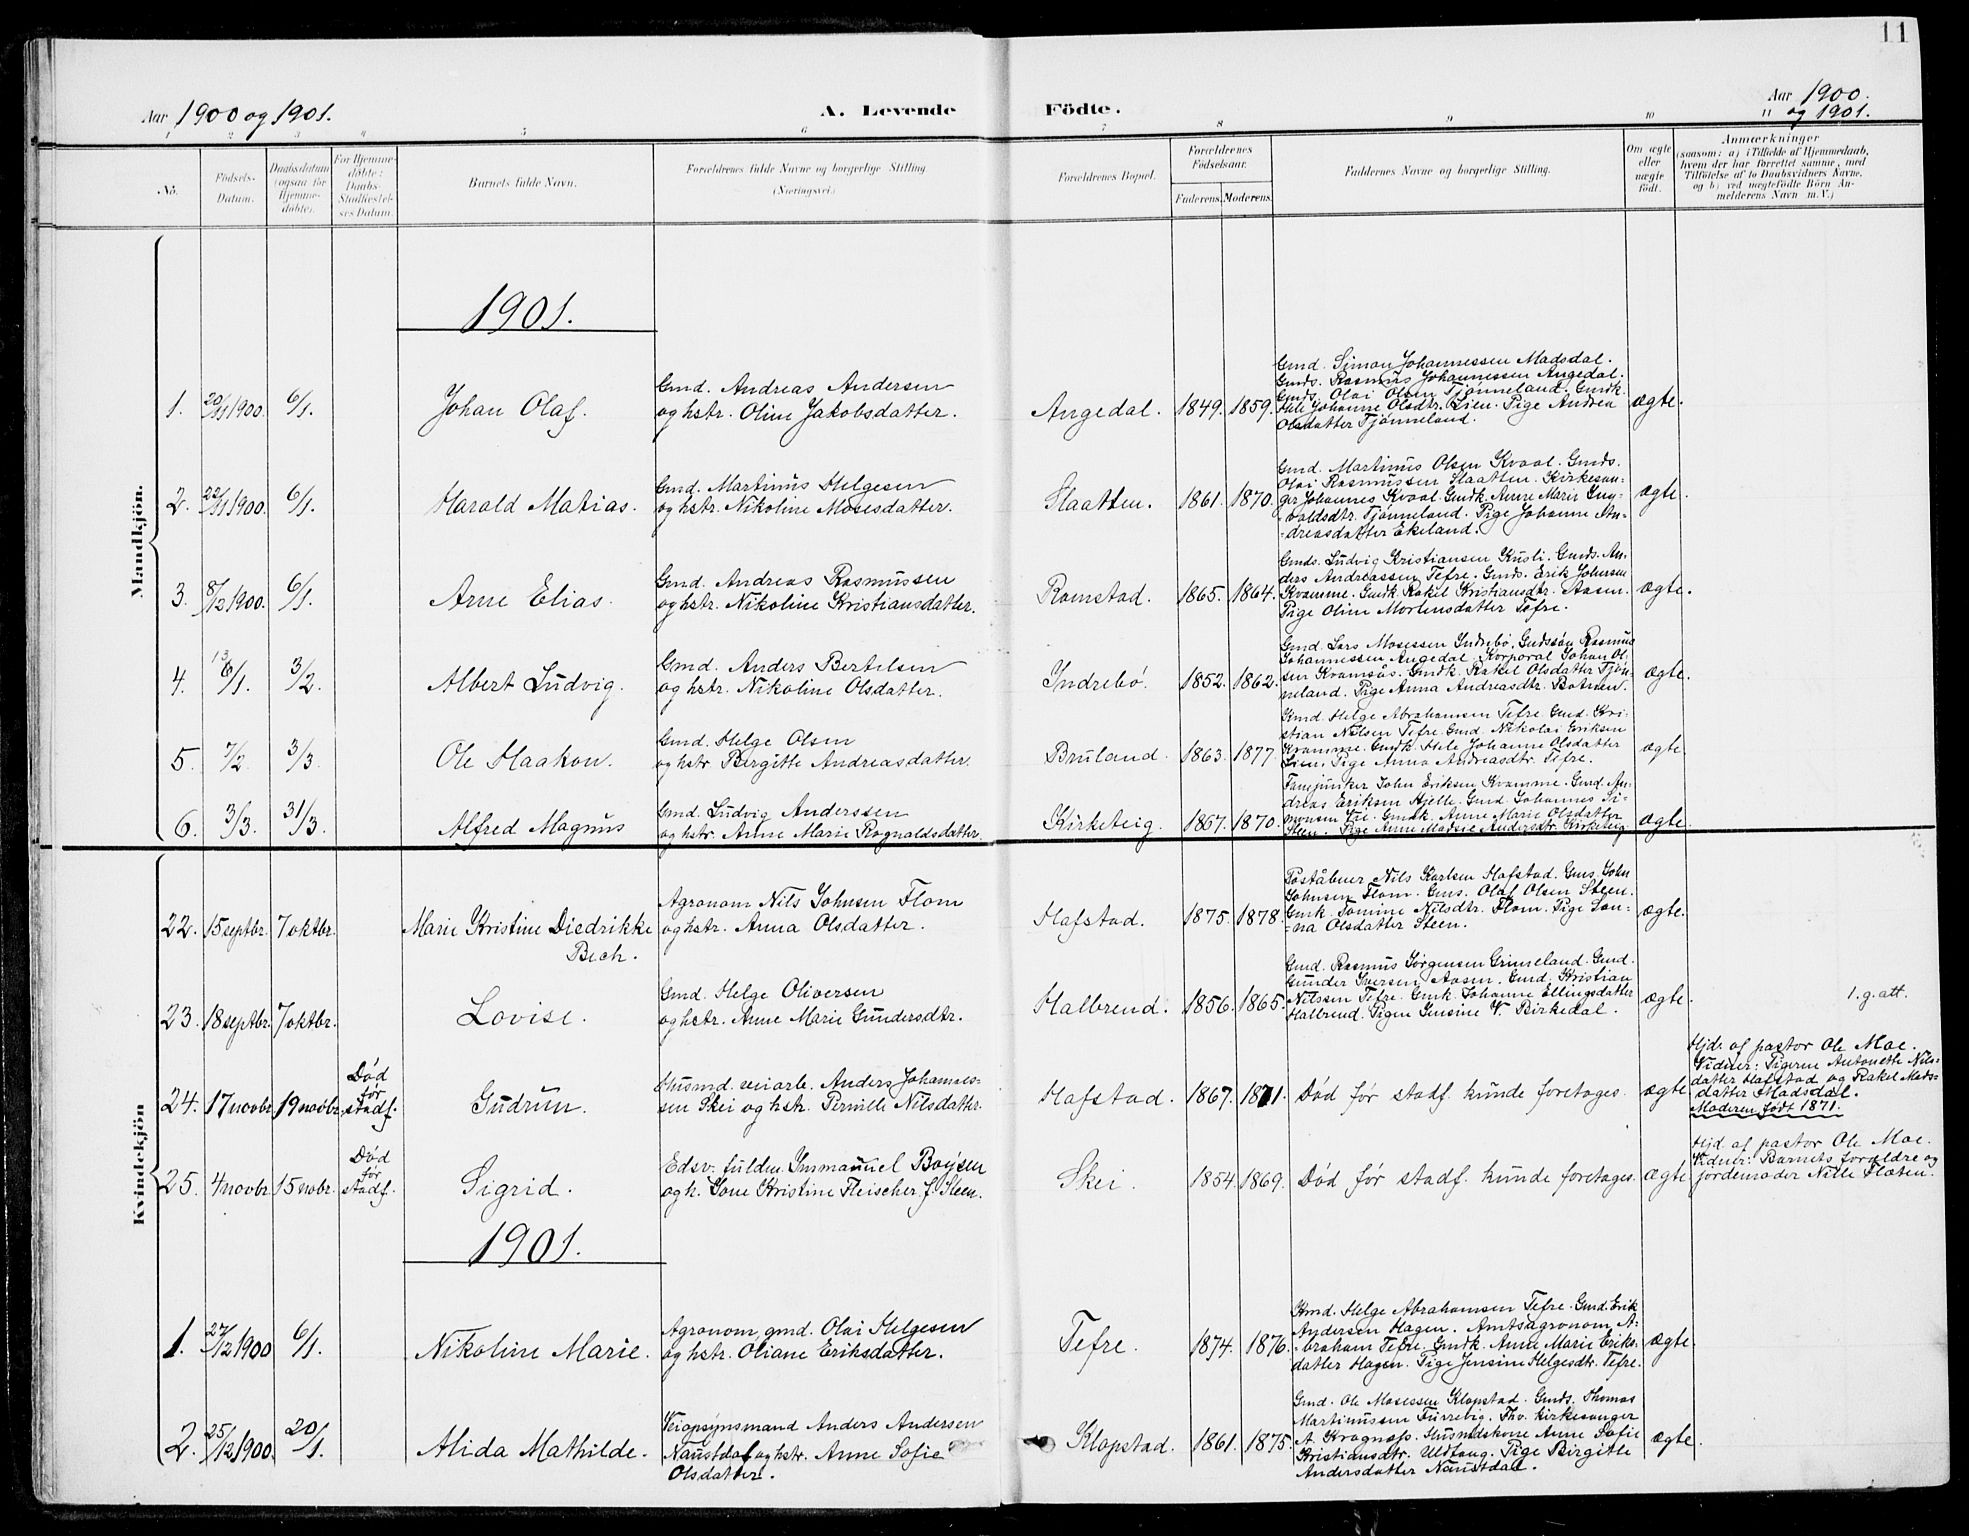 11
Aar 1900 og 1901.
A. Levende Födte.
Aar 1900.
og 1901.
1 2 3 4 5 6 7 8 9 10 11
No.
Födsels-Datum.
Daabsdatum (ogsaa for Hjemmedöbte).
For Hjemmedöbte: Daabs-Stadfæstelses Datum.
Barnets fulde Navn.
Forældrenes fulde Navne og borgerlige Stilling (Næringsvei).
Forældrenes Bopæl.
Forældrenes Födselsaar.
Faderens. Moderens.
Faddernes Navne og borgerlige Stilling.
Om ægte eller uægte födt.
Anmærkninger
(saasom: a) i Tilfælde af Hjemmedaab, hvem der har forrettet samme, med Tilföielse af to Daabsvidners Navne, og b) ved uægtefödte Börn Anmelderens Navn m.V.)
Mandkjön.
1901.
1. 20/11 1900. 6/1. Johan Olaf.
Gmd. Andreas Andersen
og hstr. Oline Jakobsdatter.
Angedal. 1849. 1859.
Gmd. Simon Johannessen Madsdal.
Gmds. Rasmus Johannessen Angedal.
Gmds. Olai Olsen Tjønneland. Gmdk.
Hele Johanne Olsdtr. Lien. Pige Andrea
Olsdatter Tjønneland.
ægte.
2. 22/11 1900. 6/1. Harald Matias.
Gmd. Martinus Helgesen
og hstr. Nikoline Mosesdatter.
Slaatten. 1861. 1870.
Gmd. Martinus Olsen Kvaal. Gmds.
Olai Rasmussen Slaatten. Kirkesan-
ger Johannes Kvaal. Gmdk. Anne Marie Gun-
valdsdtr. Tjønneland. Pige Johanne An-
dreasdatter Ekeland.
ægte.
3. 8/12 1900. 6/1. Arne Elias.
Gmd. Andreas Rasmussen
og hstr. Nikoline Kristiansdatter.
Ramstad. 1865. 1864.
Gmds. Ludvig Kristiansen Kusli. Gmds. An-
ders Andreassen Tefre. Gmds. Erik Johnsen
Kvamme. Gmdk. Rakel Kristiansdtr. Aasen.
Pige Oline Mortensdatter Tefre.
ægte.
4. 13 6/1. 3/2. Albert Ludvig.
Gmd. Anders Bertelsen
og hstr. Nikoline Olsdatter.
Indrebö. 1852. 1862.
Gmd. Lars Mosessen Indrebö. Gmdssøn Rasmus
Johannessen Angedal. Korporal Johan Ol-
sen Kvamsås. Gmdk. Rakel Olsdatter Tjøn-
neland. Pige Anna Andreasdtr. Botnen.
ægte.
5. 7/2. 3/3. Ole Haakon.
Gmd. Helge Olsen
og hstr. Birgitte Andreasdatter.
Bruland. 1863. 1877.
Kmd. Helge Abrahamsen Tefre. Gmd. Kri-
stian Nilsen Tefre. Gmd. Nikolai Eriksen
Kvamme. Gmdk. Hele Johanne Olsdatter
Lien. Pige Anna Andreasdtr. Tefre.
ægte.
6. 3/3. 31/3. Alfred Magnus
Gmd. Ludvig Anderssen
og hstr. Anne Marie Rognaldsdatter.
Kirketeig. 1867. 1870.
Fanejunker John Eriksen Kvamme. Gmd. An-
dreas Eriksen Hjelle. Gmd. Johannes Si-
monsen Vie. Gmdk. Anne Marie Olsdatter
Steen. Pige Anne Madsie Andersdtr. Kirketeig.
ægte
Kvindekjön
22. 15 septbr. 7 oktbr. Marie Kristine Diedrikke
Bech.
Agronom Nils Johnsen Flom
og hstr. Anna Olsdatter.
Hafstad. 1875. 1878.
Poståbner Nils Karlsen Hafstad. Gms. John
Johnsen Flom. Gms. Olaf Olsen Steen.
Gmk. Tomine Nilsdtr. Flom. Pige San-
na Olsdatter Steen.
ægte.
23. 18 septbr. 7 oktbr. Lovise.
Gmd. Helge Oliversen
og hstr. Anne Marie Gundersdtr.
Halbrend. 1856. 1865.
Gmd. Rasmus Jørgensen Grimeland. Gmd.
Gunder Iversen Aasen. Gmd. Kristian
Nilssen Tefre. Gmk. Johanne Ellingsdatter
Halbrend. Pigen Jensine V. Birkedal.
ægte.
1. g. att.
24. 17 novbr. 19 novbr. Død før stadf. Gudrun.
Husmd. veiarb. Anders Johannes-
sen Skei og hstr. Pernille Nilsdatter.
Hafstad. 1867. 1871.
Død før stadf. kunde foretages.
ægte
Hjd. af pastor Ole Moe.
Vidner: Pigerne Antonette Nils-
datter Hafstad og Rakel Mads-
datter Madsdal.
Moderen født 1871.
25. 4 novbr. 15 nobr. Død før stadf. Sigrid.
Edsv. fuldm. Immanuel Boysen
og h. Lone Kristine Fleischer f. Steen.
Skei. 1854. 1869.
Død før stadf. kunde foretages.
ægte
Hjd. af pastor Ole Moe.
Vidner: Barnets forældre og
jordemoder Nille Flaten.
1901.
1. 27/12 1900 6/1. Nikoline Marie.
Agronom, gmd. Olai Helgesen
og hstr. Oliane Eriksdatter.
Tefre. 1874. 1876.
Kmd. Helge Abrahamsen Tefre. Gmd. Erik
Andersen Hagen. Amtsagronom A-
braham Tefre. Gmdk. Anne Marie Eriks-
datter Hagen. Pige Jensine Helgesdtr. Tefre.
ægte.
2. 25/12 1900. 20/1. Alida Mathilde.
Veiopsynsmand Anders Andersen
Naustdal og hstr. Anne Sofie
Olsdatter.
Klopstad. 1861. 1875.
Gmd. Ole Mosessen Klopstad. Gmds. Thomas
Martinussen Furrebig. Fhv. kirkesanger
A. Krognæss. Husmdskone Anne Sofie
Kristiansdtr. Uldtang. Pige Birgitte
Andersdatter Naustdal.
ægte.